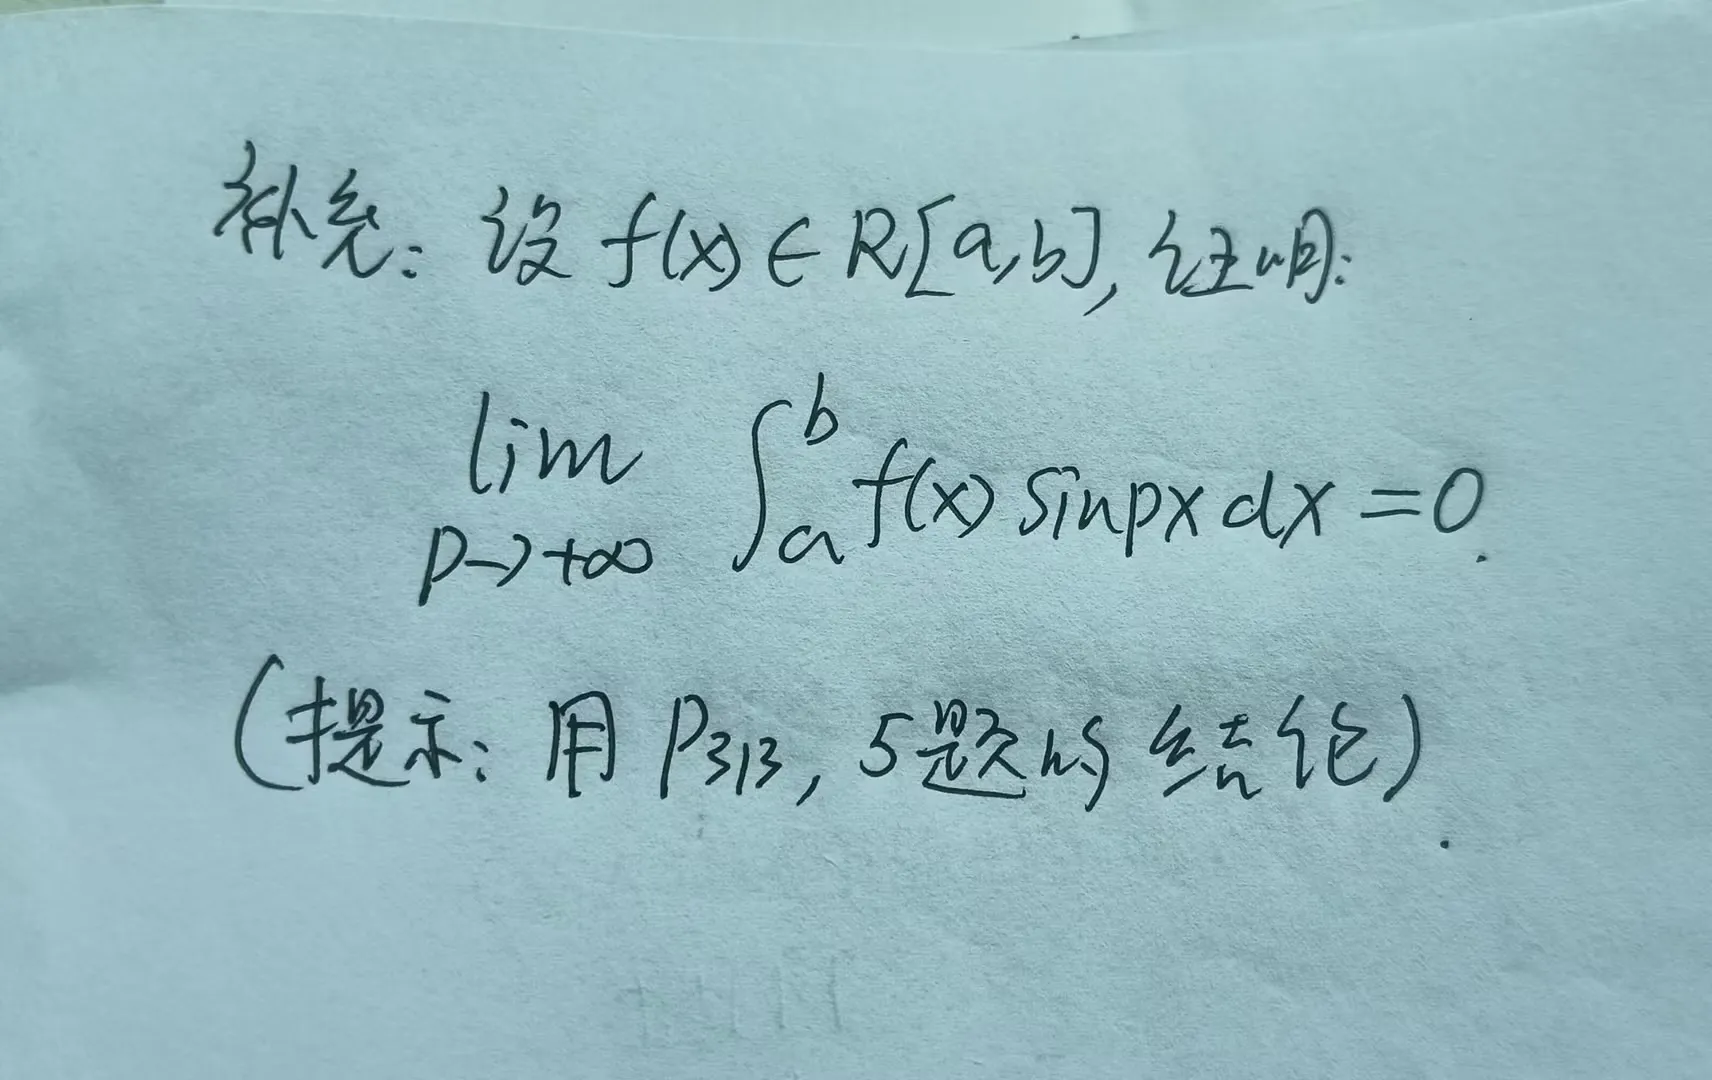 补充：设 f(x)∈R[a,b]，证明：
lim p→+∞ ∫_a^b f(x) sinpx dx = 0.
（提示：用 P313，5题的结论）.